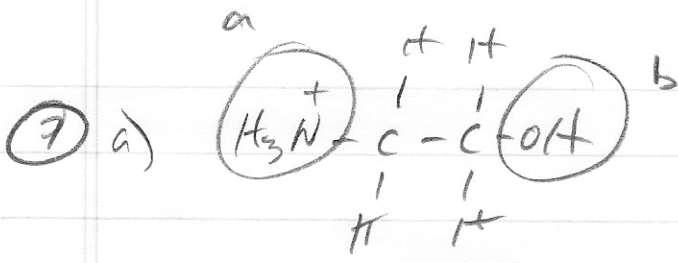 a
H H
b
7 a) H₃N⁺-C-C-OH
H H